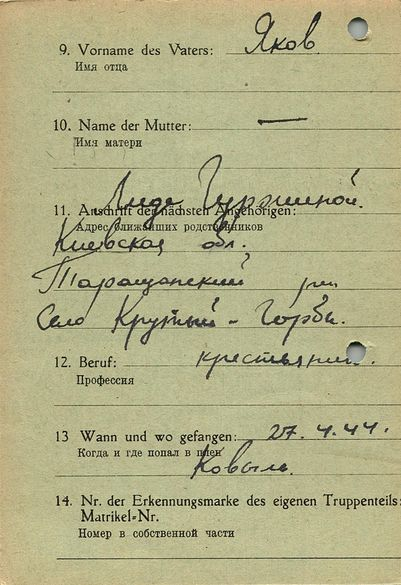 9. Vorname des Vaters: Яков
Имя отца
10. Name der Mutter: —
Имя матери
Лиде
11. Anschrift der nächsten Angehörigen:
Адрес ближайших родственников
Киевская обл.
Таращанский
Село Крутый - Горбы.
12. Beruf: крестьянин.
Профессия
13 Wann und wo gefangen: 27.4.44.
Когда и где попал в плен
Ковыль
14. Nr. der Erkennungsmarke des eigenen Truppenteils:
Matrikel=Nr.
Номер в собственной части